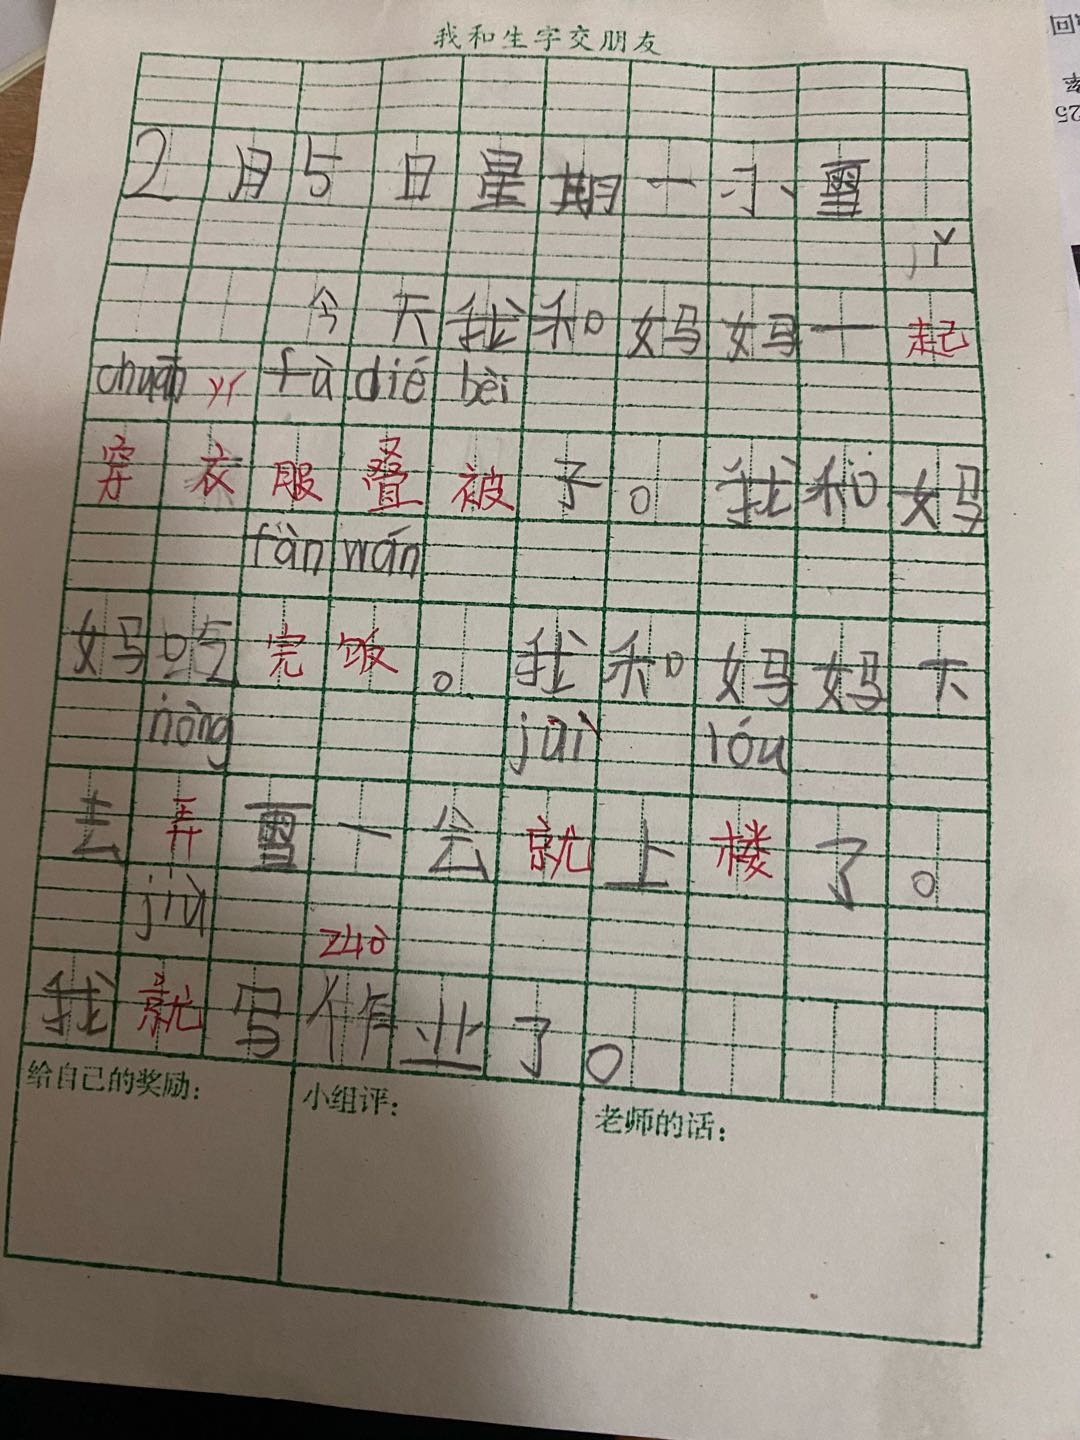 我和生字交朋友
2月5日星期一小雪
jǐ
今天我和妈妈一起
chuān yī fù dié bèi
穿衣服叠被子。我和妈
fàn wán
妈吃完饭。我和妈妈下
nòng jùi lóu
去弄雪一会就上楼了。
jiù zuò
我就写作业了。
给自己的奖励：
小组评：
老师的话：